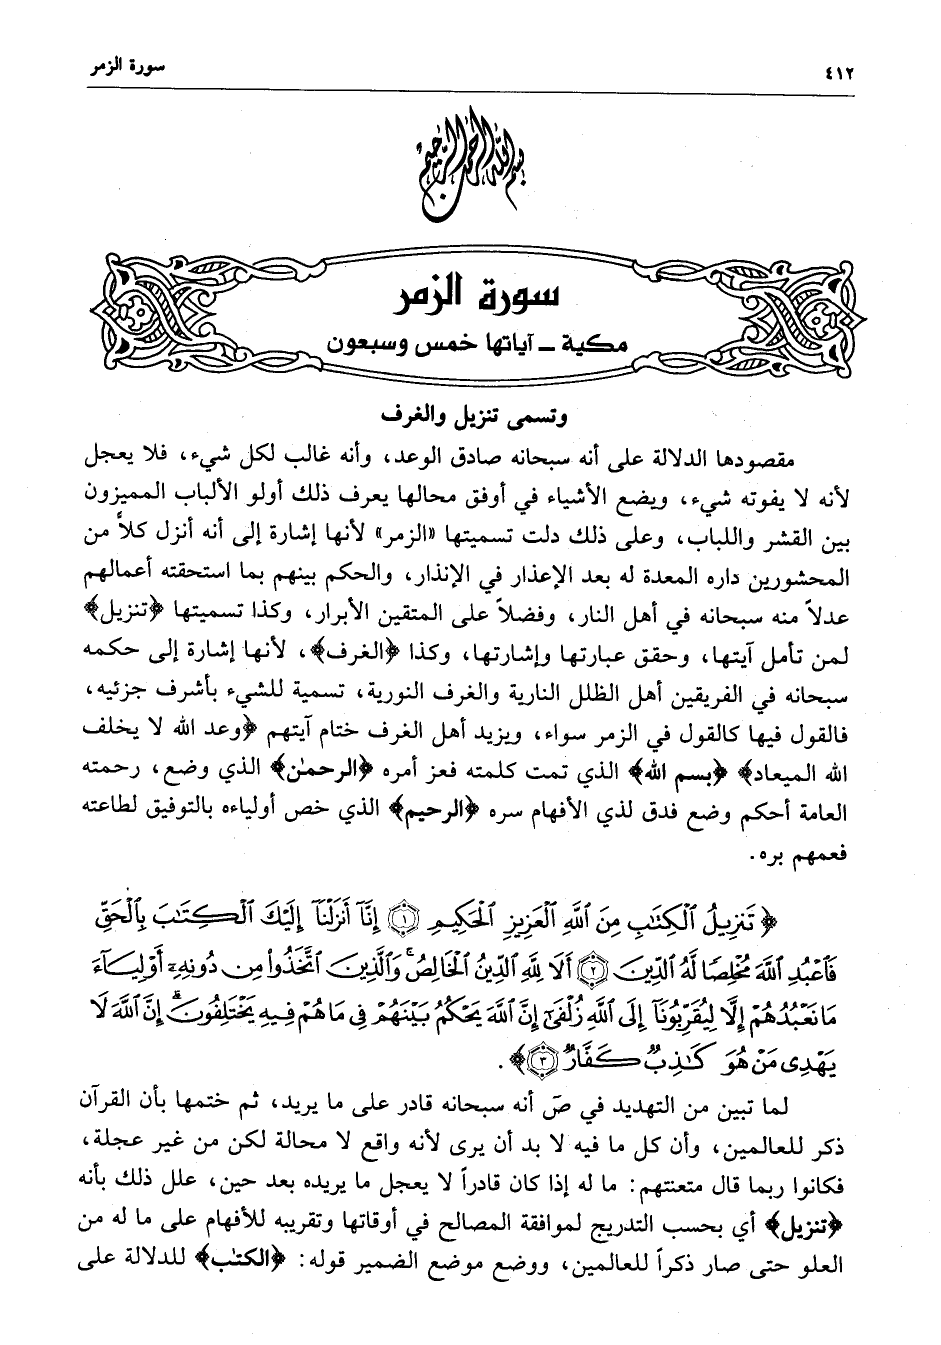 ٤١٢
سورة الزمر
بسم الله الرحمن الرحيم
سورة الزمر
مكية ــ آياتها خمس وسبعون
وتسمى تنزيل والغرف
مقصودها الدلالة على أنه سبحانه صادق الوعد، وأنه غالب لكل شيء، فلا يعجل
لأنه لا يفوته شيء، ويضع الأشياء في أوفق محالها يعرف ذلك أولو الألباب المميزون
بين القشر واللباب، وعلى ذلك دلت تسميتها «الزمر» لأنها إشارة إلى أنه أنزل كلاً من
المحشورين داره المعدة له بعد الإعذار في الإنذار، والحكم بينهم بما استحقته أعمالهم
عدلاً منه سبحانه في أهل النار، وفضلاً على المتقين الأبرار، وكذا تسميتها ﴿تنزيل﴾
لمن تأمل آيتها، وحقق عبارتها وإشارتها، وكذا ﴿الغرف﴾، لأنها إشارة إلى حكمه
سبحانه في الفريقين أهل الظلل النارية والغرف النورية، تسمية للشيء بأشرف جزئيه،
فالقول فيها كالقول في الزمر سواء، ويزيد أهل الغرف ختام آيتهم ﴿وعد الله لا يخلف
الله الميعاد﴾ ﴿بسم الله﴾ الذي تمت كلمته فعز أمره ﴿الرحمٰن﴾ الذي وضع، رحمته
العامة أحكم وضع فدق لذي الأفهام سره ﴿الرحيم﴾ الذي خص أولياءه بالتوفيق لطاعته
فعمهم بره.
﴿تَنزِيلُ ٱلْكِتَٰبِ مِنَ ٱللَّهِ ٱلْعَزِيزِ ٱلْحَكِيمِ ۝١ إِنَّآ أَنزَلْنَآ إِلَيْكَ ٱلْكِتَٰبَ بِٱلْحَقِّ
فَٱعْبُدِ ٱللَّهَ مُخْلِصًا لَّهُ ٱلدِّينَ ۝٢ أَلَا لِلَّهِ ٱلدِّينُ ٱلْخَالِصُ ۚ وَٱلَّذِينَ ٱتَّخَذُوا۟ مِن دُونِهِۦٓ أَوْلِيَآءَ
مَا نَعْبُدُهُمْ إِلَّا لِيُقَرِّبُونَآ إِلَى ٱللَّهِ زُلْفَىٰٓ إِنَّ ٱللَّهَ يَحْكُمُ بَيْنَهُمْ فِى مَا هُمْ فِيهِ يَخْتَلِفُونَ ۗ إِنَّ ٱللَّهَ لَا
يَهْدِى مَنْ هُوَ كَٰذِبٌ كَفَّارٌ ۝٣﴾.
لما تبين من التهديد في صۤ أنه سبحانه قادر على ما يريد، ثم ختمها بأن القرآن
ذكر للعالمين، وأن كل ما فيه لا بد أن يرى لأنه واقع لا محالة لكن من غير عجلة،
فكانوا ربما قال متعنتهم: ما له إذا كان قادراً لا يعجل ما يريده بعد حين، علل ذلك بأنه
﴿تنزيل﴾ أي بحسب التدريج لموافقة المصالح في أوقاتها وتقريبه للأفهام على ما له من
العلو حتى صار ذكراً للعالمين، ووضع موضع الضمير قوله: ﴿الكتٰب﴾ للدلالة على